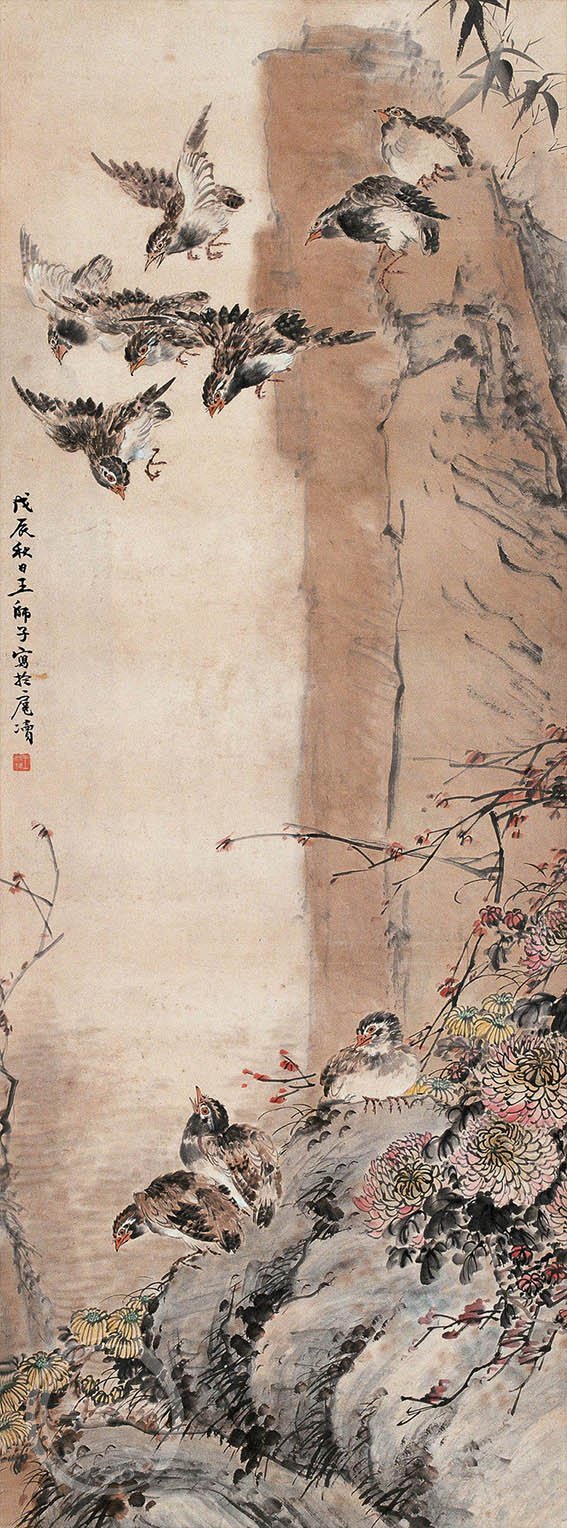 戊辰秋日王師子寫於扈瀆